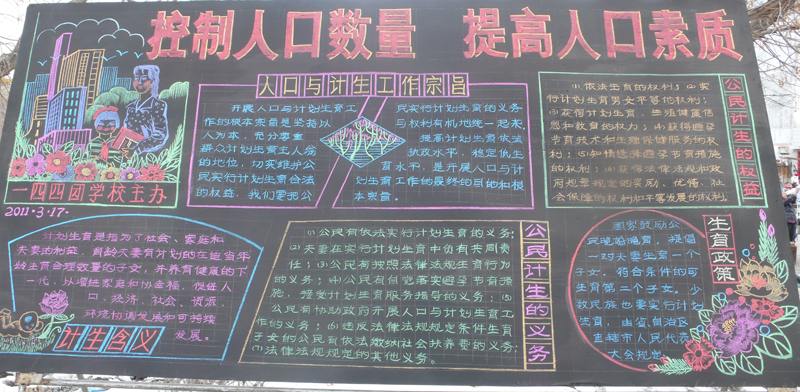 控制人口数量 提高人口素质
一四四团学校主办
2011·3·17·
人口与计生工作宗旨
开展人口与计划生育工
作的根本宗旨是坚持以
人为本,充分尊重
群众计划生育主人翁
的地位,切实维护公
民实行计划生育合法
的权益,我们要把公
民实行计划生育的义务
与权利有机地统一起来,
提高计划生育依法
执政水平,稳定低生
育水平,是开展人口与计
划生育工作的最终的目的和根
本宗旨。
公民计生的权益
(1)依法生育的权利;(2)实
行计划生育男女平等的权利;
(3)获得计划生育、生殖健康信
息和教育的权力;(4)获得避孕
节育技术和生殖保健服务的权
利;(5)知情选择避孕节育措施
的权利;(6)获得法律法规和政
府规章规定的奖励、优待、社
会保障的权利和平等发展的权利。
计划生育是指为了社会、家庭和
夫妻的利益,育龄夫妻有计划的在适当年
龄生育合理数量的子女,并养育健康的下
一代,以增进家庭和协幸福,促进人
口、经济、社会、资源、
环境协调发展和可持续
发展。
计生含义
(1)公民有依法实行计划生育的义务;
(2)夫妻在实行计划生育中负有共同责
任;(3)公民有按照法律法规生育行为
的义务;(4)公民有自觉落实避孕节育措
施,接受计划生育服务指导的义务;(5)
公民有协助政府开展人口与计划生育工
作的义务;(6)违反法律法规规定条件生育
子女的公民有依法缴纳社会抚养费的义务;
(7)法律法规规定的其他义务。
公民计生的义务
生育政策
国家鼓励公
民晚婚晚育,提倡
一对夫妻生育一个
子女。符合条件的可
生育第二个子女。少
数民族也要实行计划
生育,由省、自治区、
直辖市人民代表
大会规定。